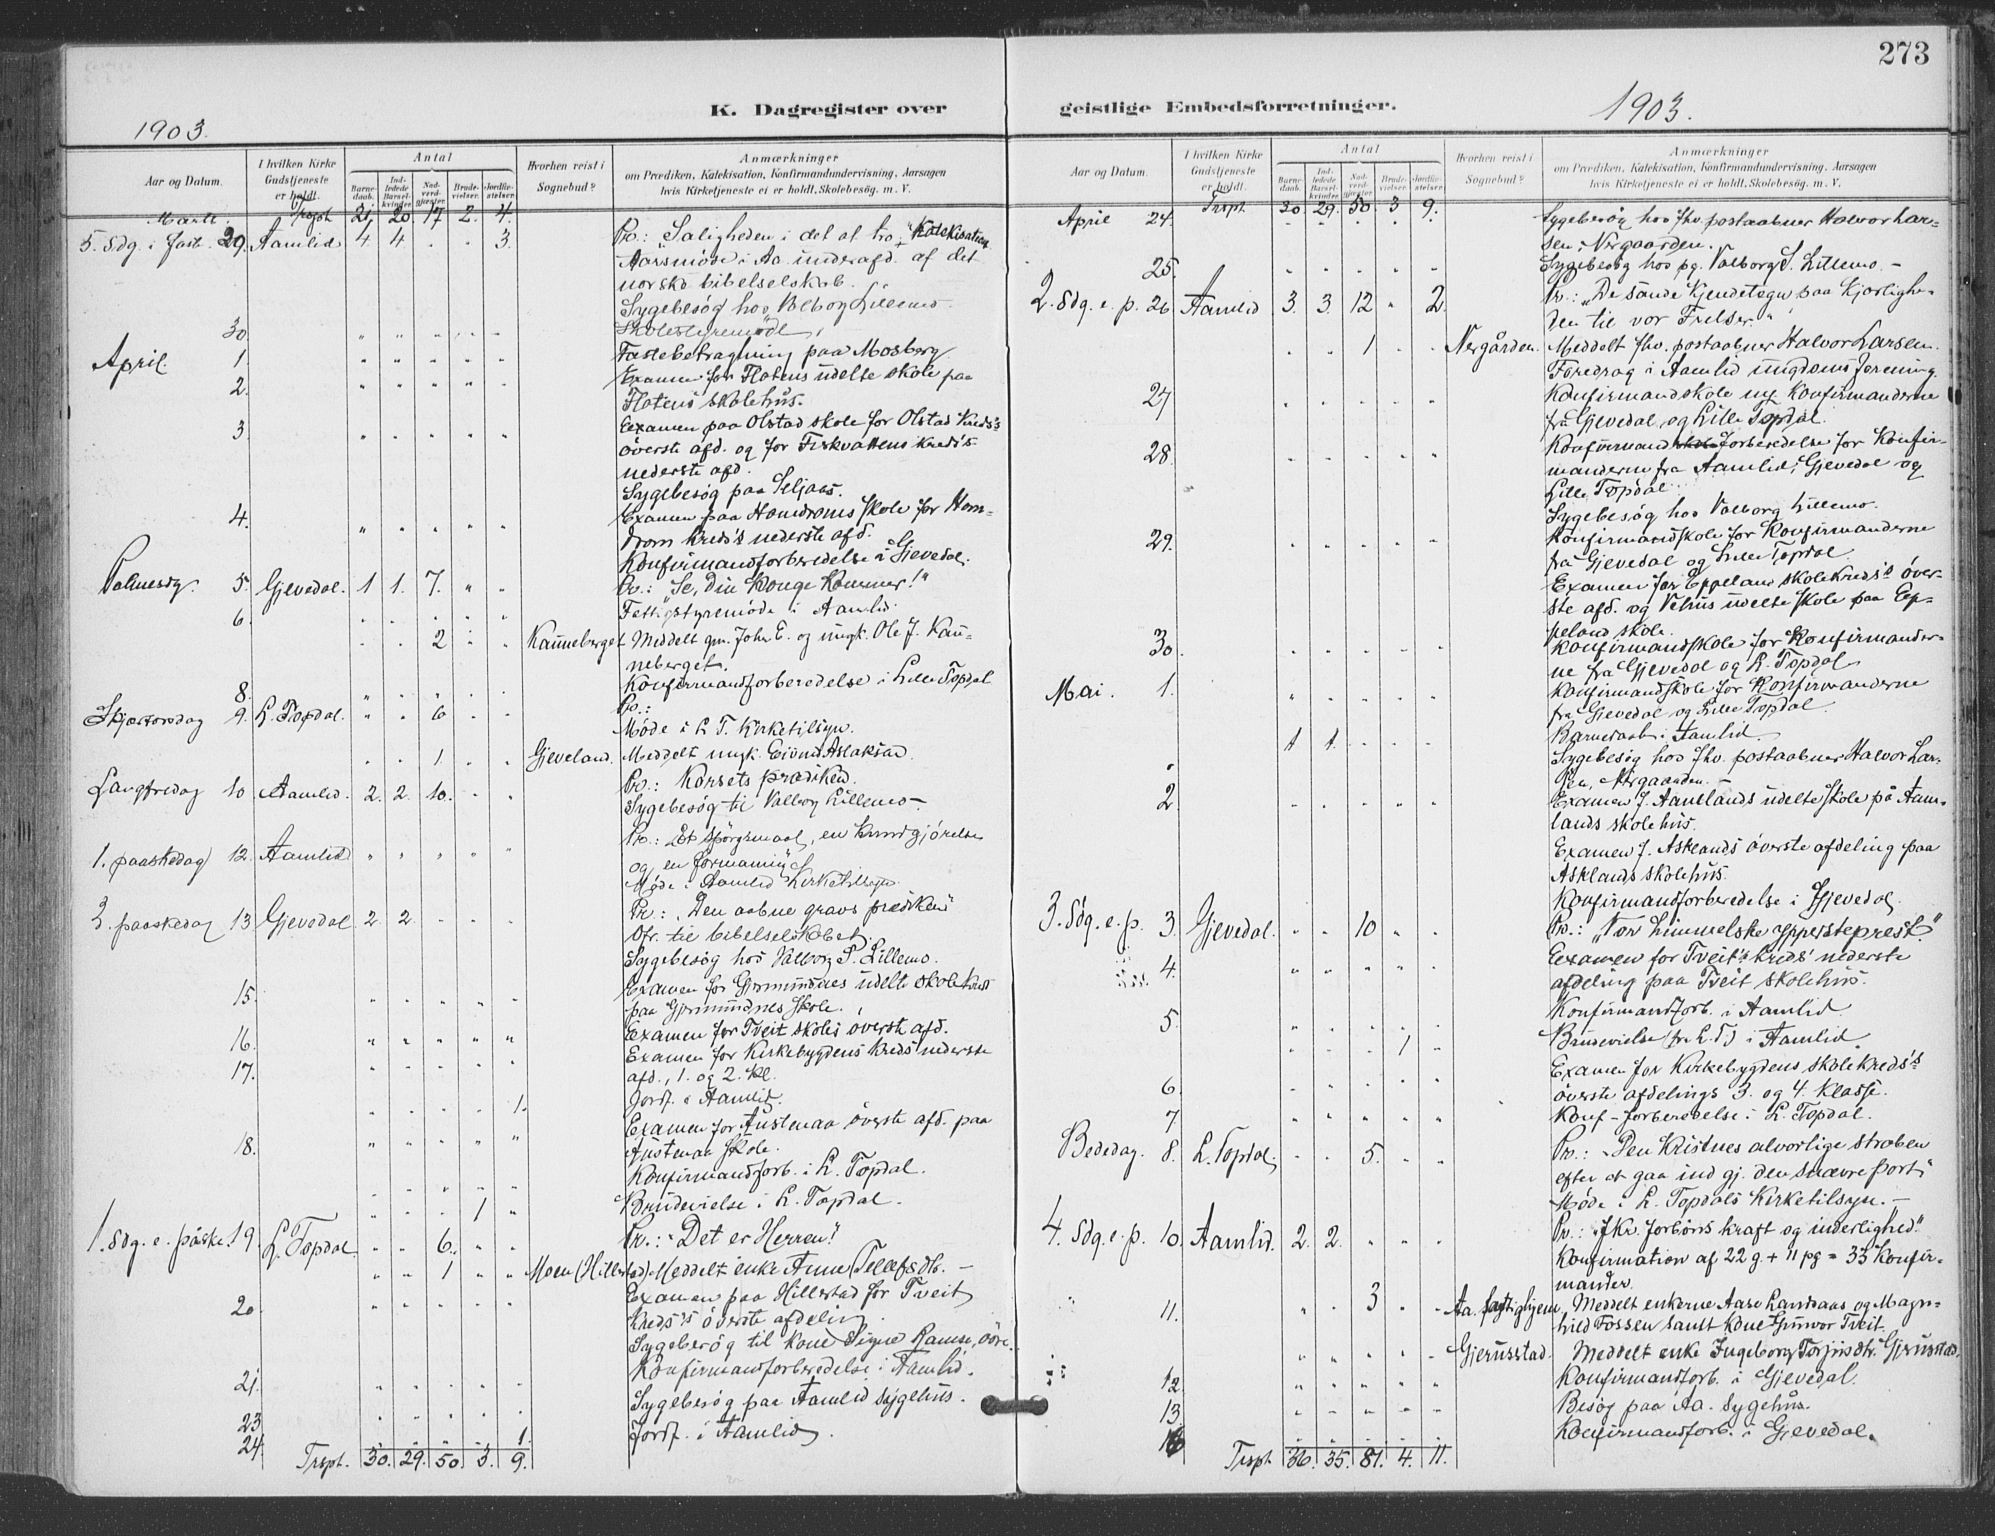 273
K. Dagregister over
geistlige Embedsforretninger.
1903.
1903.
Aar og Datum.
I hvilken Kirke Gudstjeneste er holdt.
Antal
Barnedaab.
Indledede Barselkvinder.
Nadverdgjester.
Brudevielser.
Jordfæstelser.
Hvorhen reist i Sognebud?
Anmærkninger
om Prædiken, Katekisation, Konfirmandundervisning, Aarsagen
hvis Kirketjeneste ei er holdt. Skolebesøg. m. V.
Marts. Trspt. 21. 20. 17. 2. 4.
5. Sdg. i fast. 29. Aamlid 4 4 " " 3. Pr.: Saligheden i det at tro, Katekisation
Aarsmøde i Aa. underafd. af det
norske bibelselskab.
Sygebesøg hos Valborg Lillemo.
30. " " " " " Skolestyremøde.
April. 1. " " " " " Fastebetragtning paa Mosberg.
2. " " " " " Examen for Flatens udelte skole paa
Flatens skolehus.
3 " " " " " Examen paa Olstad skole for Olstad Kreds's
överste afd. og for Fiskvattens Kreds's
nederste afd.
Sygebesøg paa Seljaas.
4. " " " " " Examen paa Hamdroms skole for Hom-
drom kreds's nederste afd.
Konfirmandforberedelse i Gjevedal.
Palmesdg. 5. Gjevedal. 1 1. 7. " " Pr.: "Se, Din Konge Kommer!"
6. " " " " " Fattigstyremøde i Aamlid.
" " 2 " " Kauneberget Meddelt gm. John E. og ungk. Ole J. Kau-
neberget.
8. " " " " " Konfirmandforberedelse i Lille Topdal
Skjærtorsdag 9. L. Topdal. " " 6 " " Pr.:
Møde i L. T. Kirketilsyn.
" " 1 " " Gjeveland. Meddelt ungk. Eivind Aslaksen
Langfredag 10 Aamlid. 2. 2 10. " " Pr.: Korsets prædiken.
Sygebesøg til Valborg Lillemo.
1. paaskedag 12. Aamlid " " " " " Pr.: Et spørgsmaal, en kundgjørelse
og en formaning
Møde i Aamlid Kirketilsyn.
2. paaskedag 13 Gjevedal 2. 2. " " " Pr.: "Den aabne gravs prædiken"
Ofr. til bibelselskabet.
Sygebesøg hos Valborg S. Lillemo.
15. " " " " " Examen for Gjermundnes udelte skolekreds
paa Gjermundnes skole.
16. " " " " " Examen for Tveit skoles överste afd.
17. " " " " " Examen for Kirkebygdens kreds' nederste
afd., 1. og 2. Kl.
" " " " 1. Jordf. i Aamlid.
18. " " " " " Examen for Austenaa överste afd. paa
Austenaa skole.
" " " " " Konfirmandforb. i L. Topdal.
" " " 1 " Brudevielse i L. Topdal.
1. Sdg. e. påske. 19. L. Topdal. " " 6. " " Pr.: "Det er Herren!"
" " 1 " " Moen (Hillestad) Meddelt enke Anne Tellefsdtr. –
20. " " " " " Examen paa Hillestad for Tveit
kreds's överste afdeling.
Sygebesøg til kone Signe Ramse, övre.
21. " " " " " Konfirmandforberedelse i Aamlid.
23 " " " " " Sygebesøg paa Aamlid sygehus.
24. " " " " 1. Jordf. i Aamlid.
Trspt. 30. 29. 50 3. 9.
Aar og Datum.
I hvilken Kirke Gudstjeneste er holdt.
Antal
Barnedaab.
Indledede Barselkvinder.
Nadverdgjester.
Brudevielser.
Jordfæstelser.
Hvorhen reist i Sognebud?
Anmærkninger
om Prædiken, Katekisation, Konfirmandundervisning, Aarsagen
hvis Kirketjeneste ei er holdt. Skolebesøg. m. V.
Trspt. 30. 29. 50 3 9.
April 24. " " " " " Sygebesøg hos fhv. postaabner Halvor Lar-
sen, Nergaarden.
25. " " " " " Sygebesøg hos pg. Valborg S. Lillemo. –
2. Sdg. e. p. 26 Aamlid 3. 3. 12 " 2. Pr.: "De sande Kjendetegn paa Kjærlighe-
den til vor Frelser."
" " 1 " " Nergården. Meddelt fhv. postaabner Halvor Larsen.
Foredrag i Aamlid ungdomsforening.
27 " " " " " Konfirmandskole m. Konfirmanderne
fra Gjevedal og Lille Topdal.
28. " " " " " Konfirmandforberedelse for Konfir-
manderne fra Aamlid, Gjevedal og
Lille Topdal.
Sygebesøg hos Valborg Lillemo.
29. " " " " " Konfirmandskole for Konfirmanderne
fra Gjevedal og Lille Topdal.
Examen for Eppeland skolekreds's över-
ste afd. og Vehus udelte skole paa Ep-
peland skole.
30. " " " " " Konfirmandskole for Konfirmander-
ne fra Gjevedal og L. Topdal
Mai. 1. " " " " " Konfirmandskole for Konfirmanderne
fra Gjevedal og Lille Topdal.
1 1. " " " Barnedaab i Aamlid.
Sygebesøg hos fhv. postaabner Halvor Lar-
sen, Nergaarden. –
2. " " " " " Examen f. Aamlands udelte skole på Aam-
lands skolehus.
Examen f. Asklands överste afdeling paa
Asklands skolehus.
Konfirmandforberedelse i Gjevedal.
3. Sdg. e. p. 3. Gjevedal. " " 10 " " Pr.: "Vor himmelske ypperstepræst."
4. " " " " " Examen for Tveit's kreds' nederste
afdeling paa Tveit skolehus.
Konfirmandforb. i Aamlid.
5. " " " " " Brudevielse (fr. L. T.) i Aamlid.
" " " 1 "
6. " " " " " Examen for Kirkebygdens skolekreds's
överste afdelings 3. og 4. Klasse.
7 " " " " " Konf-forberedelse i L. Topdal.
Bededag. 8. L. Topdal. " " 5. " " Pr.: "Den kristnes alvorlige stræben
efter at gaa ind gj. den snævre port"
Møde i L. Topdals Kirketilsyn. –
4. Sdg. e. p. 10. Aamlid. 2. 2. " " " Pr.: "Jkr. forbøns kraft og inderlighed."
Konfirmation af 22 g. + 11 pg = 33 Konfir-
mander.
11. " " 3 " " Aa. fattighjem, Meddelt enkerne Aase Landaas og Magn-
hild Fossen samt kone Gunvor Tveit.
" " " " " Gjerusstad. Meddelt enke Ingeborg Torjusdtr. Gjerusstad.
12 " " " " " Konfirmandforb. i Gjevedal.
13. " " " " " Besøg paa Aa. Sygehus.
" " " " " Konfirmandforb. i Gjevedal.
Trspt. 36. 35. 81. 4. 11.